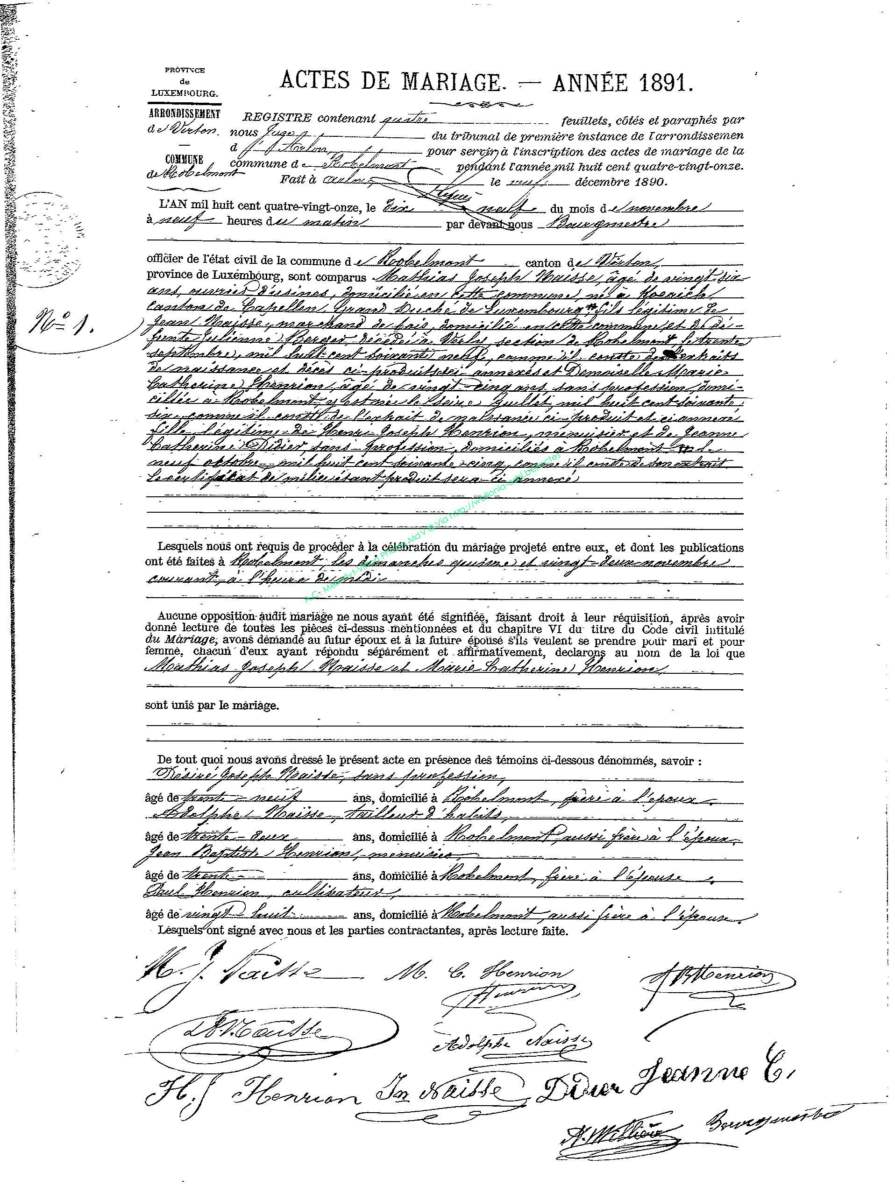 PROVINCE
de
LUXEMBOURG.
ARRONDISSEMENT
de Virton.
COMMUNE
de Robelmont
ACTES DE MARIAGE. — ANNÉE 1891.
REGISTRE contenant quatre feuillets, côtés et paraphés par
nous Juge du tribunal de première instance de l'arrondissemen
d'Arlon, pour servir à l'inscription des actes de mariage de la
commune de Robelmont pendant l'année mil huit cent quatre-vingt-onze.
Fait à Arlon, le neuf décembre 1890.
L'AN mil huit cent quatre-vingt-onze, le dix neuf du mois de novembre
à neuf heures du matin par devant nous Bourgmestre
officier de l'état civil de la commune de Robelmont canton de Virton,
province de Luxembourg, sont comparus Mathias Joseph Naisse, âgé de vingt-six
ans, ouvrier d'usines, domicilié en cette commune, né à Koerich,
canton de Capellen, Grand Duché de Luxembourg # fils légitime de
Jean Naisse, marchand de bois, domicilié en cette commune et de dé-
funte Julienne Berger, décédée à section de Robelmont le trente
septembre, mil huit cent soixante neuf, comme il conste des extraits
de naissance et décès ci-produits ci annexés et Demoiselle Marie
Catherine Henrion, âgé de vingt-cinq ans, sans profession, domi-
ciliée à Robelmont, y est née le seize Juillet mil huit cent soixante
six comme il conste de l'extrait de naissance ci-produit et ci annexé
fille légitime de Henri Joseph Henrion, menuisier et de Jeanne
Catherine Didier, sans profession, domiciliés à Robelmont # le
neuf octobre mil huit cent soixante cinq, comme il conste de son extrait
Le certificat de milice étant produit sera ci annexé
N° 1.
Lesquels nous ont requis de procéder à la célébration du mariage projeté entre eux, et dont les publications
ont été faites à Robelmont, les dimanches quinze et vingt-deux novembre
courant, à l'heure de midi
Aucune opposition audit mariage ne nous ayant été signifiée, faisant droit à leur réquisition, après avoir
donné lecture de toutes les pièces ci-dessus mentionnées et du chapitre VI du titre du Code civil intitulé
du Màriage, avons demandé au futur époux et à la future épouse s'ils veulent se prendre pour mari et pour
femme, chacun d'eux ayant répondu séparément et affirmativement, declarons au nom de la loi que
Mathias Joseph Naisse et Marie Catherine Henrion,
sont unis par le màriage.
De tout quoi nous avons dressé le présent acte en présence des témoins ci-dessous dénommés, savoir :
Désiré Joseph Naisse, sans profession,
âgé de trente-neuf ans, domicilié à Robelmont, frère à l'époux.
Adolphe Naisse, tailleur d'habits,
âgé de trente-deux ans, domicilié à Robelmont, aussi frère à l'époux.
Jean Baptiste Henrion, menuisier,
âgé de trente ans, domicilié à Robelmont, frère à l'épouse.
Paul Henrion, cultivateur,
âgé de vingt-huit ans, domicilié à Robelmont, aussi frère à l'épouse.
Lesquels ont signé avec nous et les parties contractantes, après lecture faite.
M. J. Naisse M. C. Henrion JB Henrion
Henrion
D. Naisse Adolphe Naisse
H. J Henrion Jn Naisse Didier Jeanne C.
Bourgmestre